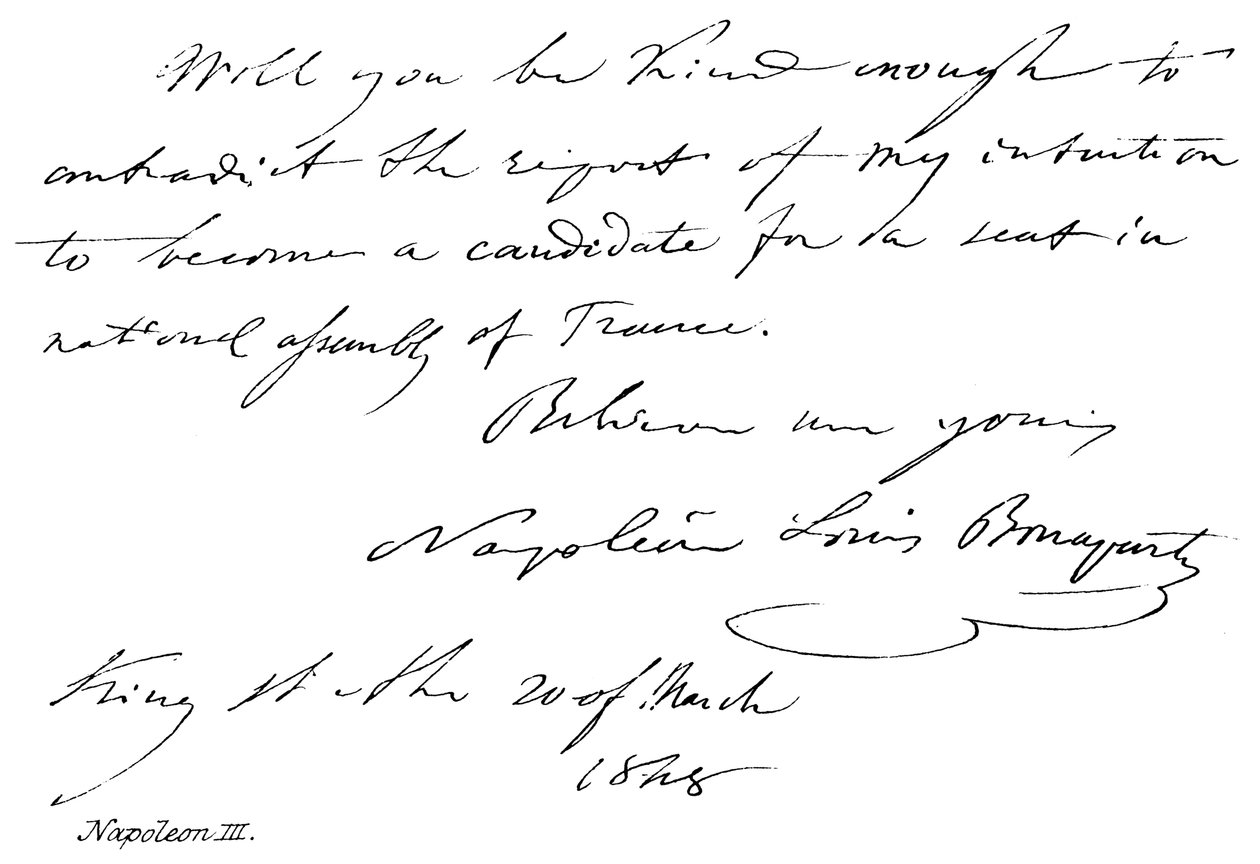 Will you be kind enough to
contradict the report of my intention
to become a candidate for a seat in
national assembly of France.
Believe me yours
Napoleon Louis Bonaparte
King st the 20 of March
1848
Napoleon III.